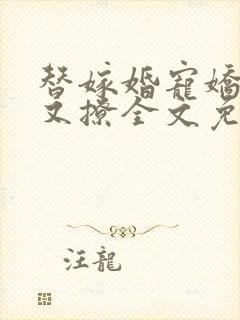 替嫁婚宠娇
又撩全文免
汪龍